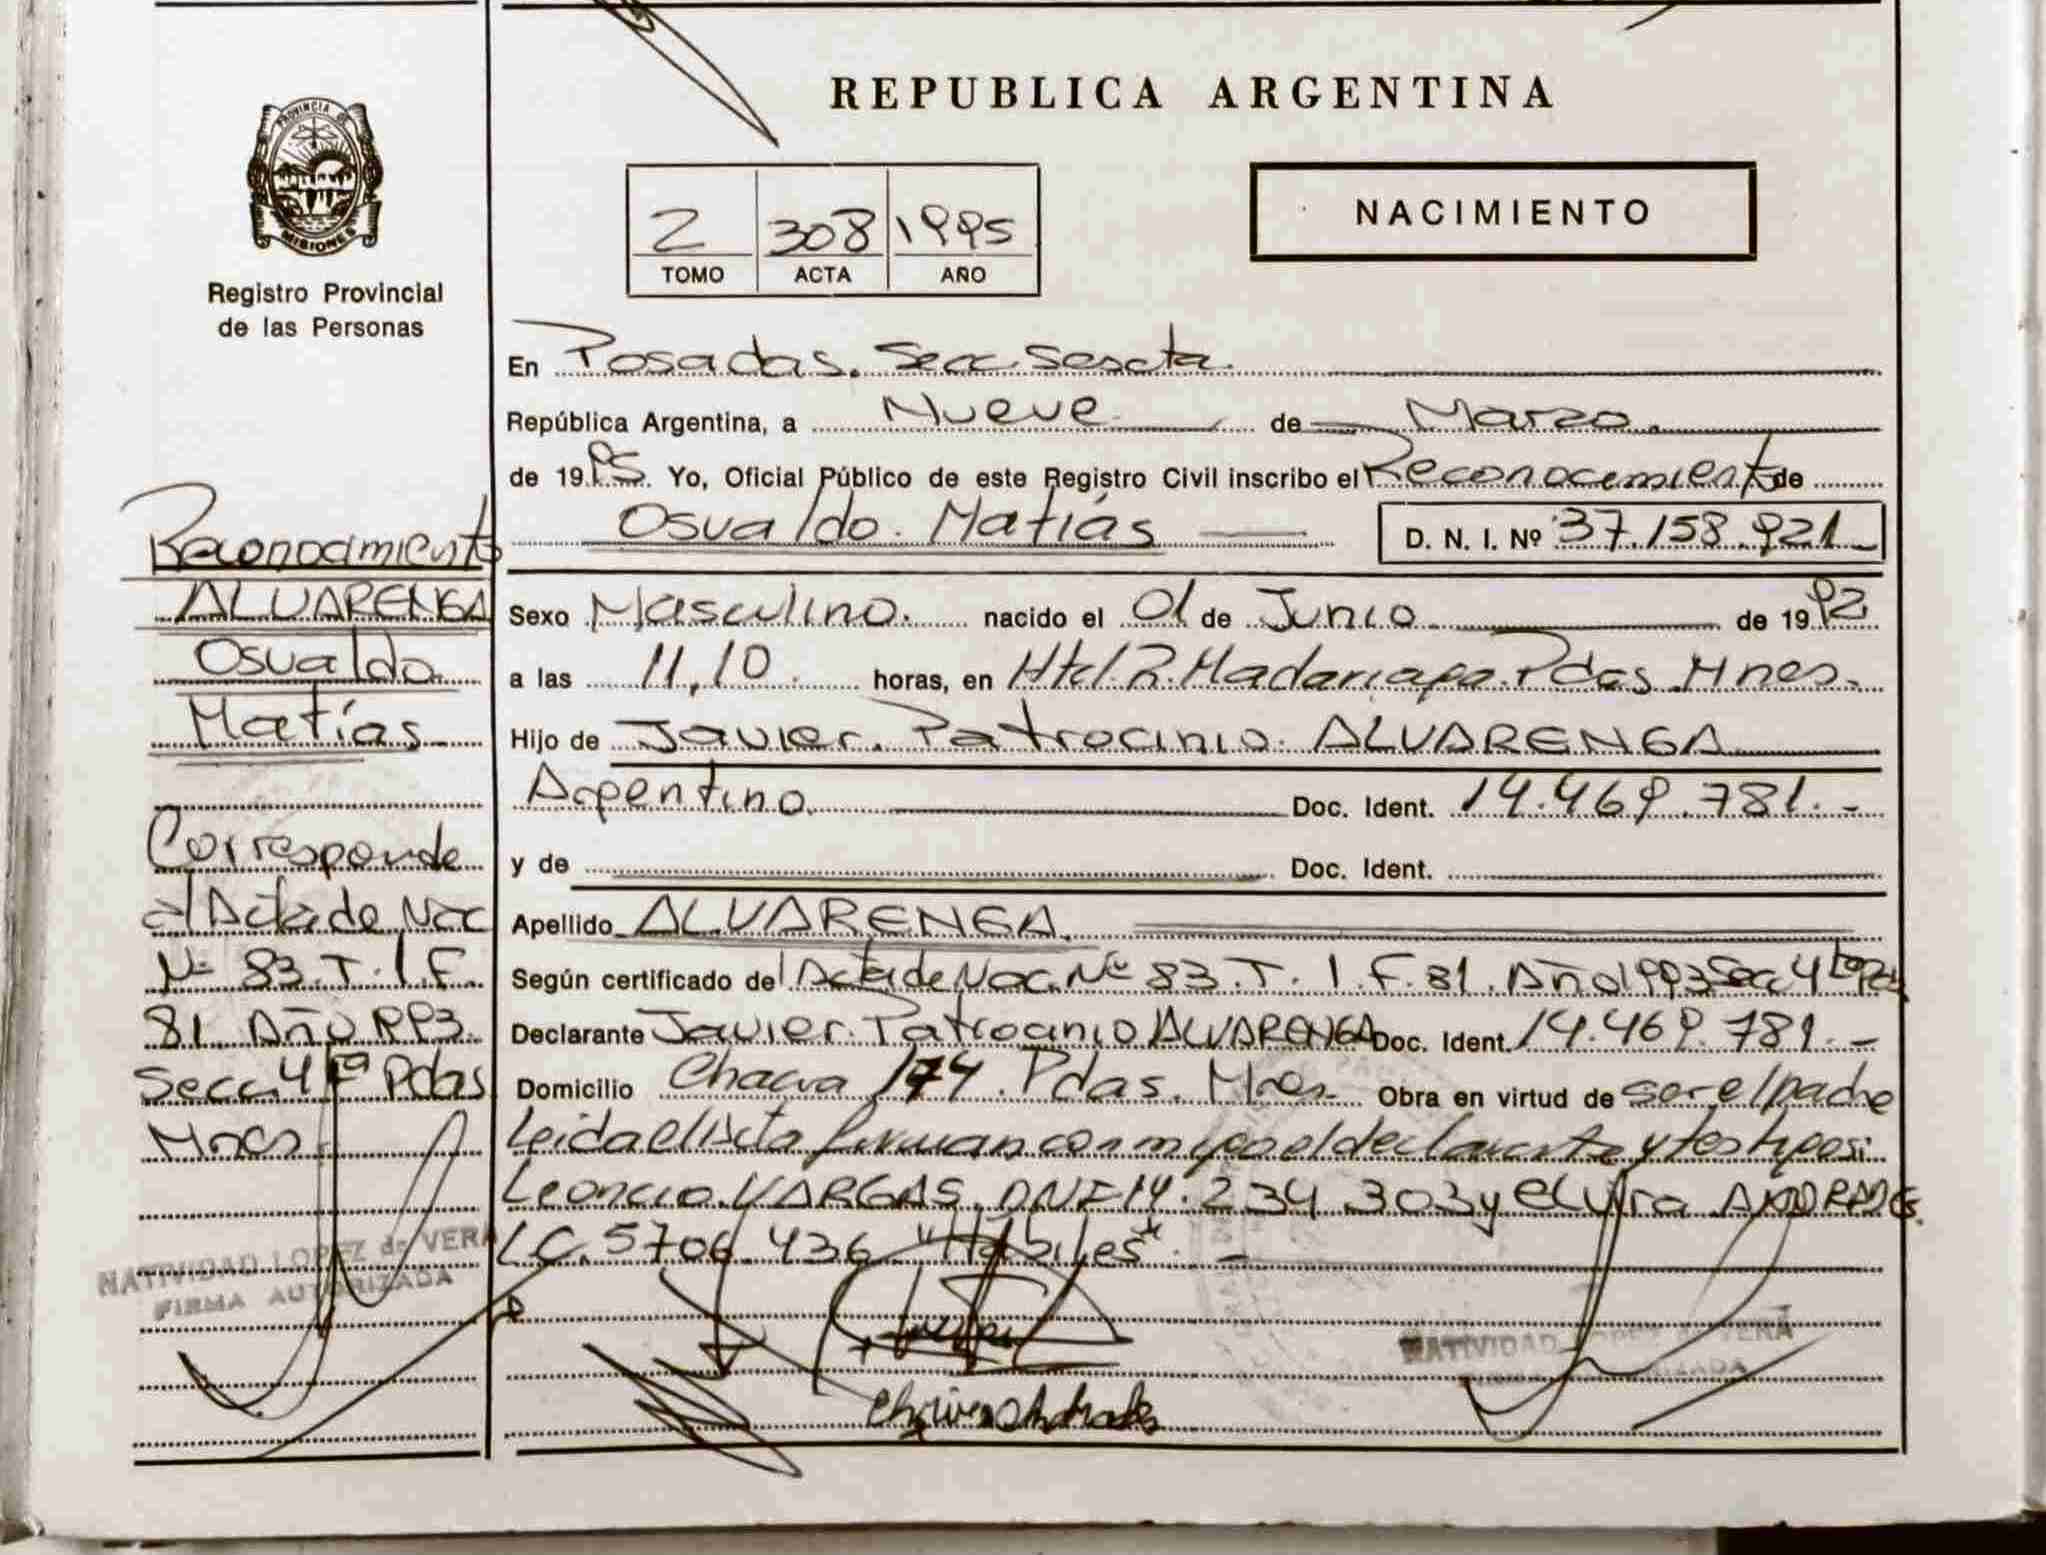 PROVINCIA DE
MISIONES
Registro Provincial
de las Personas
Reconocimiento
ALVARENGA
Osvaldo
Matías
Corresponde
al Acta de Nac
Nº 83. T. 1. F.
81. Año 1993.
Secc. 4ta Pdas
Mnes.
NATIVIDAD LOPEZ de VERA
FIRMA AUTORIZADA
REPUBLICA ARGENTINA
NACIMIENTO
2 308 1995
TOMO ACTA AÑO
En Posadas. Secc. Sescta.
República Argentina, a Nueve de Marzo.
de 1995. Yo, Oficial Público de este Registro Civil inscribo el Reconocimiento de
Osvaldo. Matías D. N. I. Nº 37.158.921
Sexo Masculino. nacido el 01 de Junio de 1992
a las 11,10. horas, en Htal. R. Madariaga. Pdas. Mnes.
Hijo de Javier. Patrocinio. ALVARENGA
Argentino. Doc. Ident. 14.469.781.-
y de Doc. Ident.
Apellido ALVARENGA.
Según certificado del Acta de Nac. Nº 83. T. 1. F. 81. Año 1993 Secc 4
Declarante Javier. Patrocinio ALVARENGA Doc. Ident. 14.469.781.-
Domicilio Chacra 174. Pdas. Mnes. Obra en virtud de ser el padre
Leida el Acta firman conmigo el declarante y testigos:
Leoncio. VARGAS. DNI 14.234.303 y Elvira ANDRADE.
LC. 5706.436 "Hábiles". -
NATIVIDAD LOPEZ de VERA
FIRMA AUTORIZADA